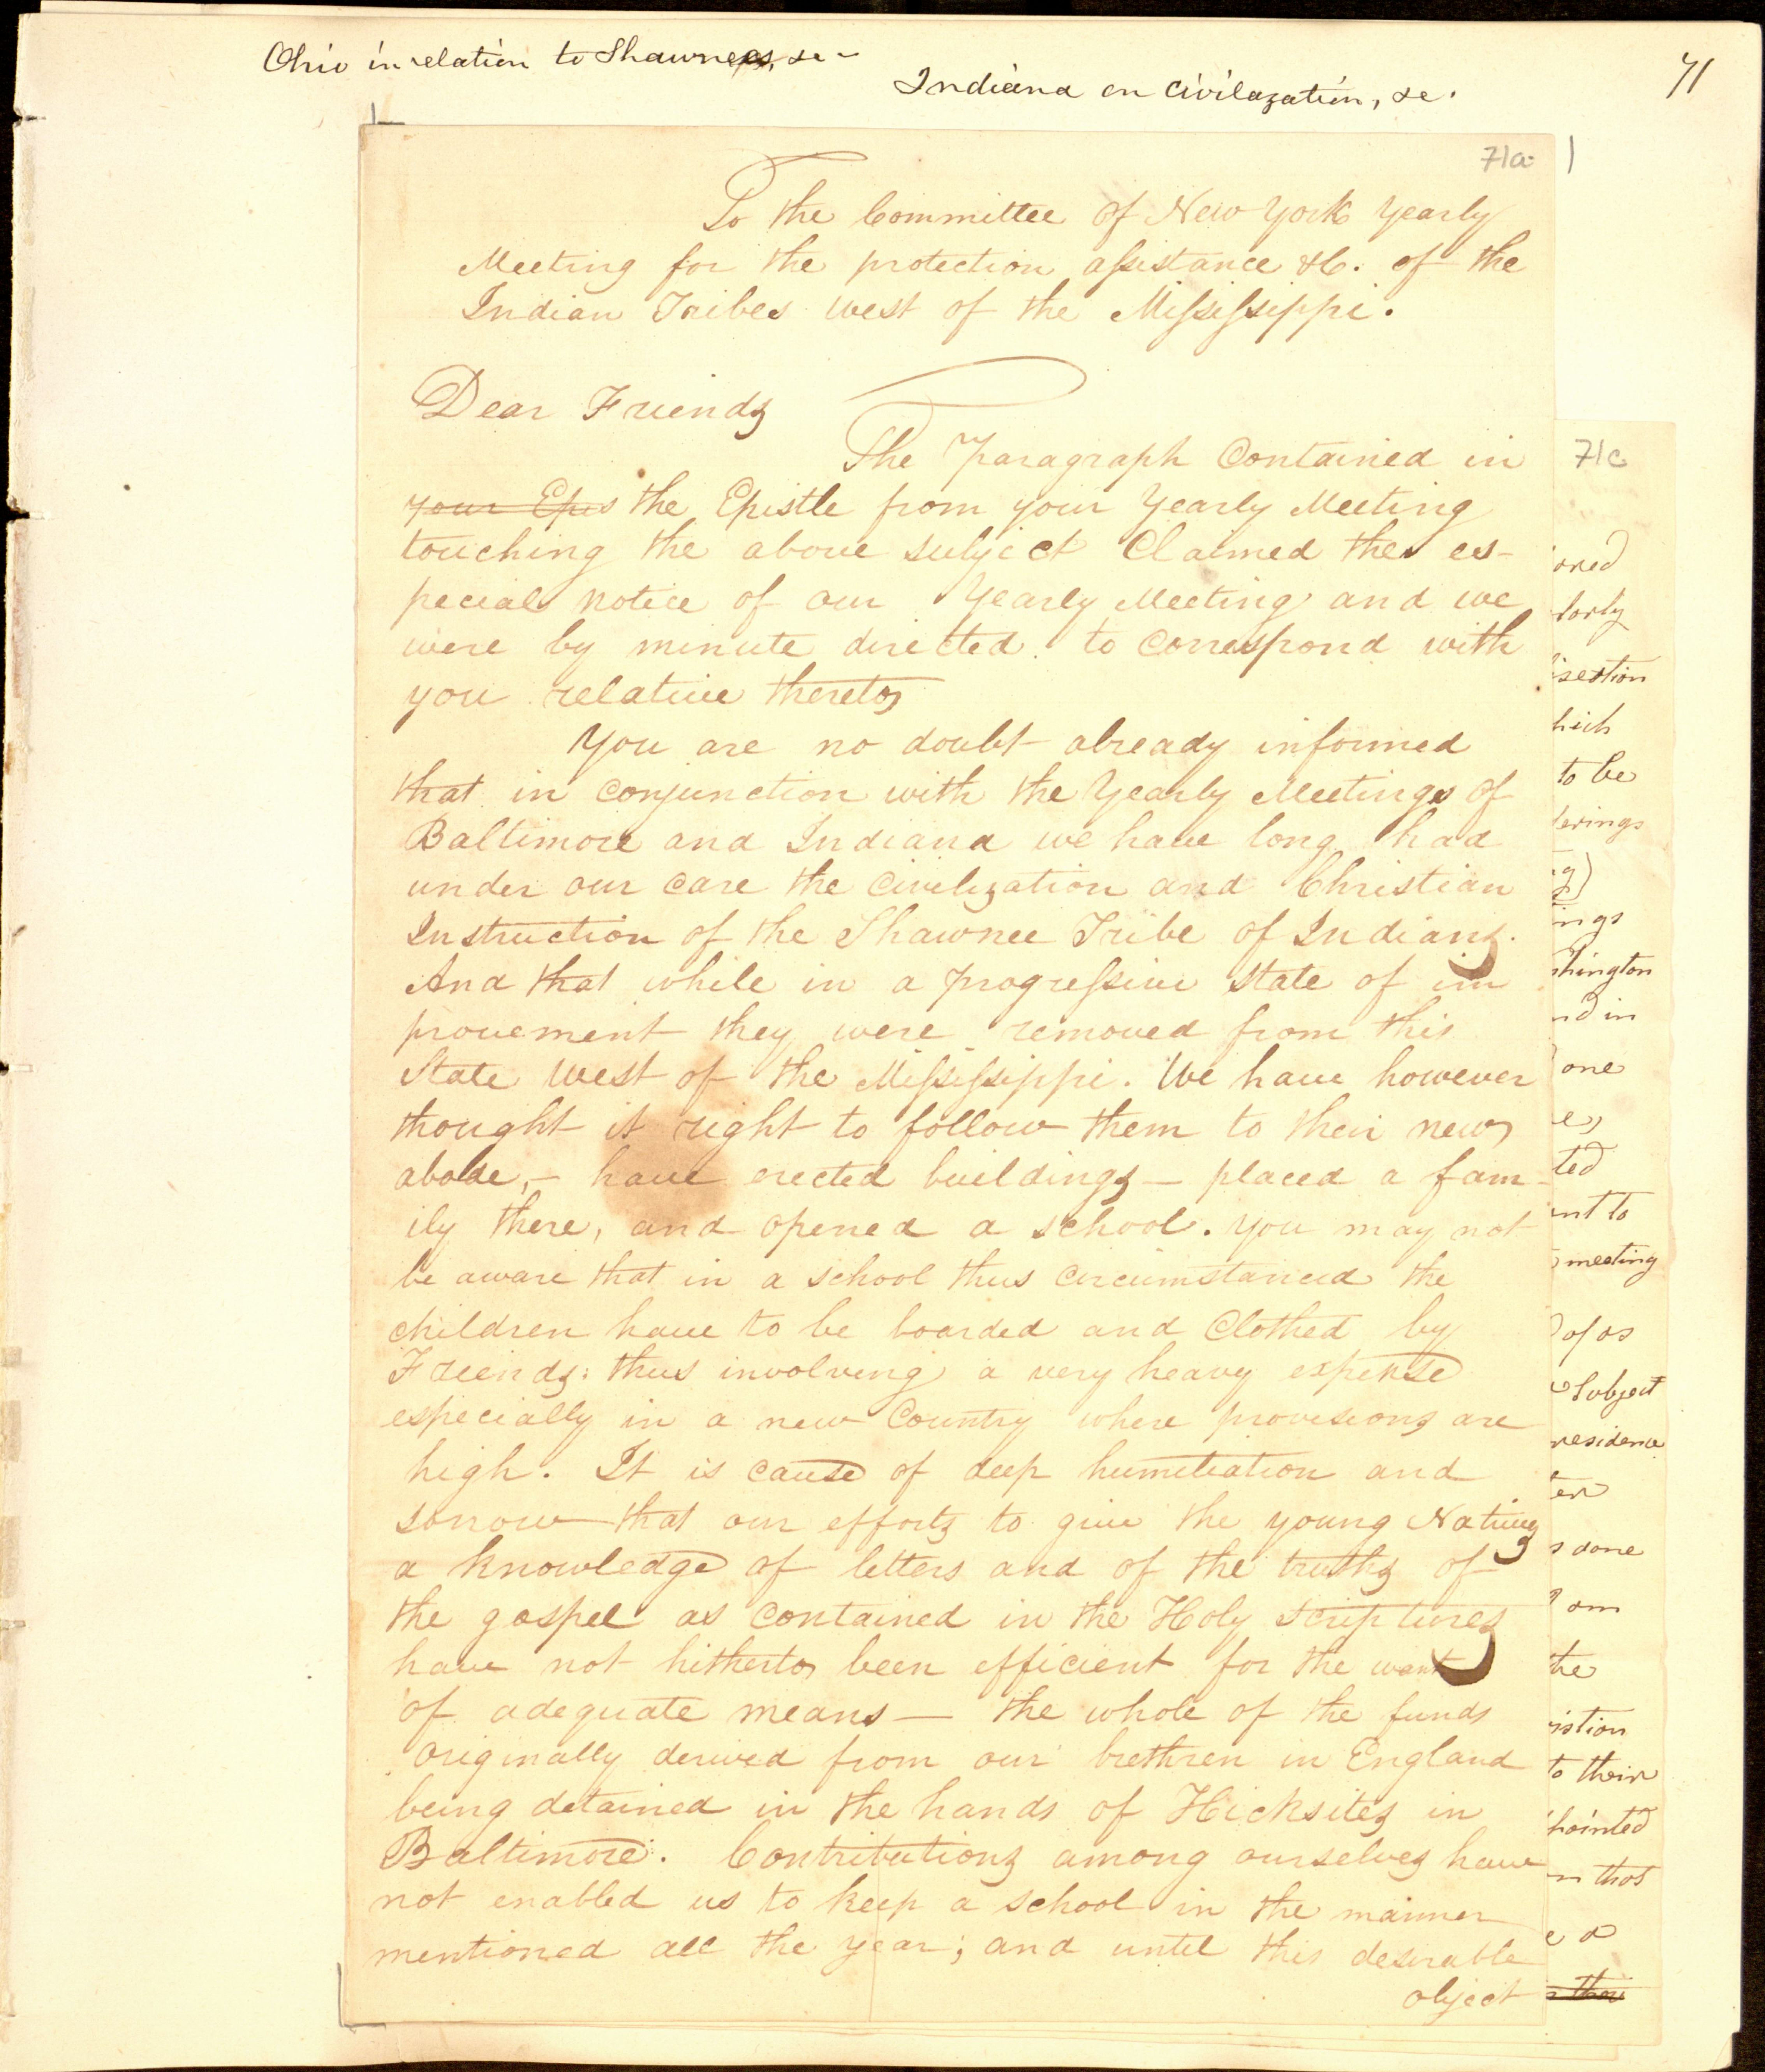 Ohio in relation to Shawnees, &c
Indiana on Civilazation, &c.
71
71a
To the Committee of New York Yearly
Meeting for the protection assistance &C. of the
Indian Tribes west of the Mississippi.
Dear Friends
The Paragraph Contained in
your Epis the Epistle from your Yearly Meeting
touching the above subject Claimed the es-
pecial notice of our Yearly Meeting and we
were by minute directed to correspond with
you relative thereto
You are no doubt already informed
that in conjunction with the Yearly Meetings of
Baltimore and Indiana we have long had
under our care the civilization and Christian
Instruction of the Shawnee Tribe of Indians.
And that while in a progressive state of im
provement they were removed from this
State West of the Mississippi. We have however
thought it right to follow them to their new
abode, – have erected buildings – placed a fam-
ily there, and opened a school. You may not
be aware that in a school thus circumstanced the
children have to be boarded and Clothed by
Friends: thus involving a very heavy expense
especially in a new Country where provisions are
high. It is cause of deep humiliation and
sorrow that our efforts to give the young Natives
a knowledge of letters and of the truths of
the gospel as contained in the Holy Scriptures
have not hitherto been efficient for the want
of adequate means – the whole of the funds
originally derived from our brethren in England
being detained in the hands of Hicksites in
Baltimore. Contributions among ourselves have
not enabled us to keep a school in the manner
mentioned all the year; and until this desirable
object
71c
oned
larly
hich
to be
ings
shington
nd in
one
ted
ent to
meeting
of as
Subject
residence
ten
s done
om
the
to their
pointed
n that
e a